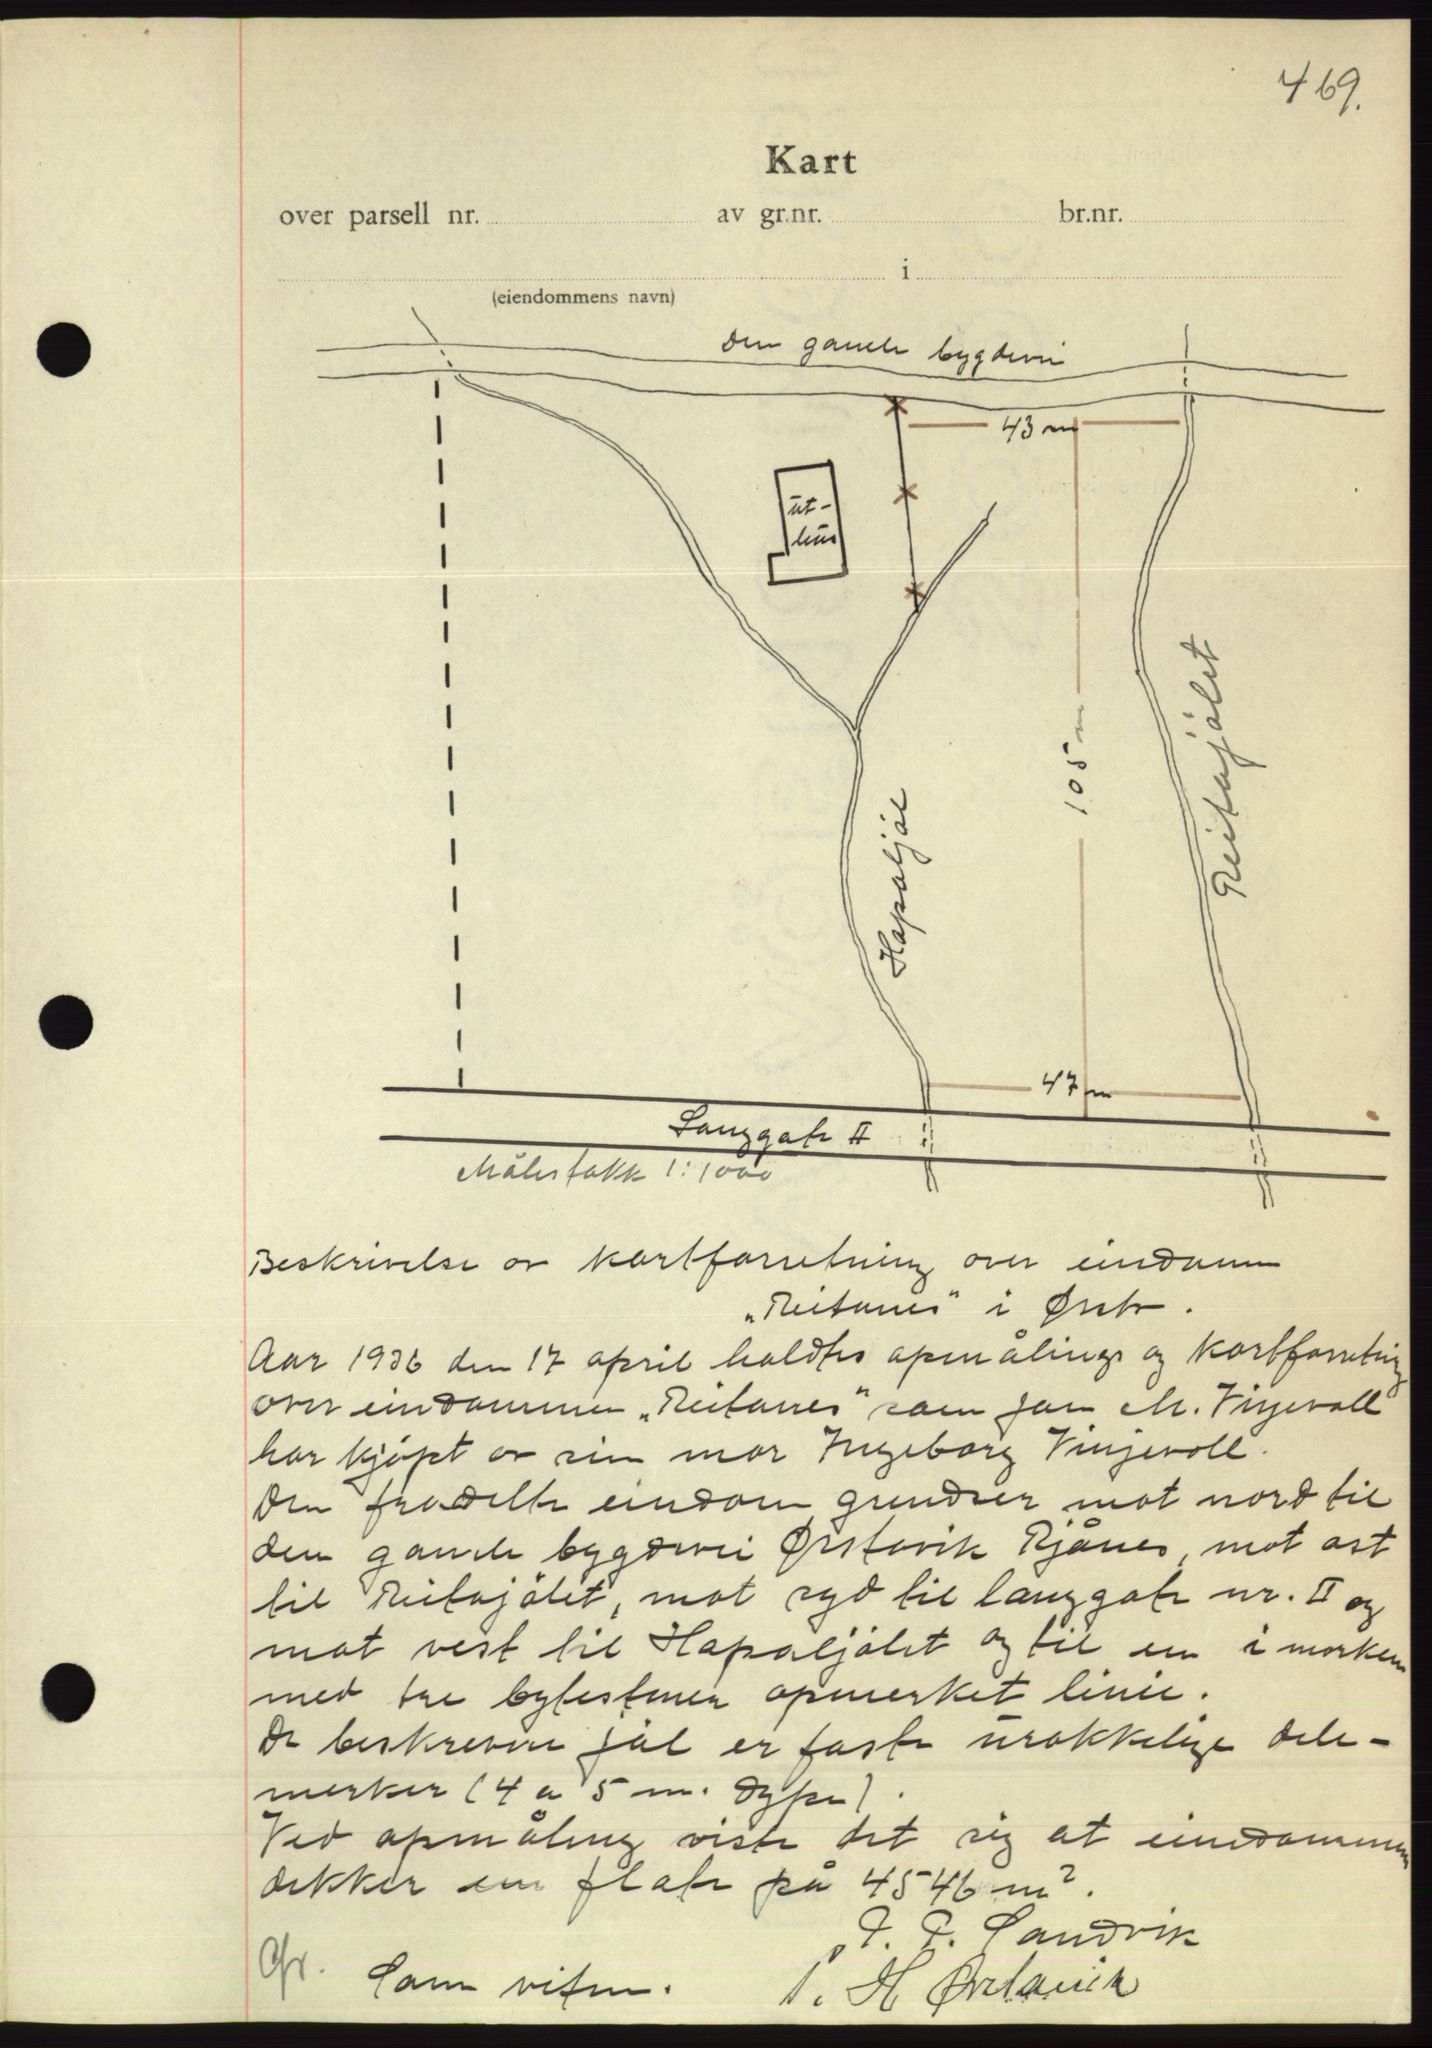 469.
Kart
over parsell nr. av gr.nr. br.nr.
i
(eiendommens navn)
Den gamle bygdevei
43 m
ut-
hus
105 m
Reitajølet
Hapaljøl
47 m
Langgate II
Målestokk 1:1000
Beskrivelse av kartforretning over eiendommen
"Reitanes" i Ørsta.
Aar 1936 den 17 april holdtes opmålings og kartforretning
over eiendommen "Reitanes" som Jon M. Vinjevoll
har kjøpt av sin mor Ingeborg Vinjevoll.
Den fradelte eiendom grendser mot nord til
den gamle bygdevei Ørstavik Rjånes, mot øst
til Reitajølet, mot syd til langgate nr. II og
mot vest til Hapaljølet og til en i marken
med tre bytestener opmerket linie.
De beskrevne jøl er faste urokkelige dele-
merker (4 a 5 m. dype).
Ved opmåling viste det sig at eiendommen
dekker en flate på 4546 m².
P. P. Sandvik
Som viten. P. H Ørstavik